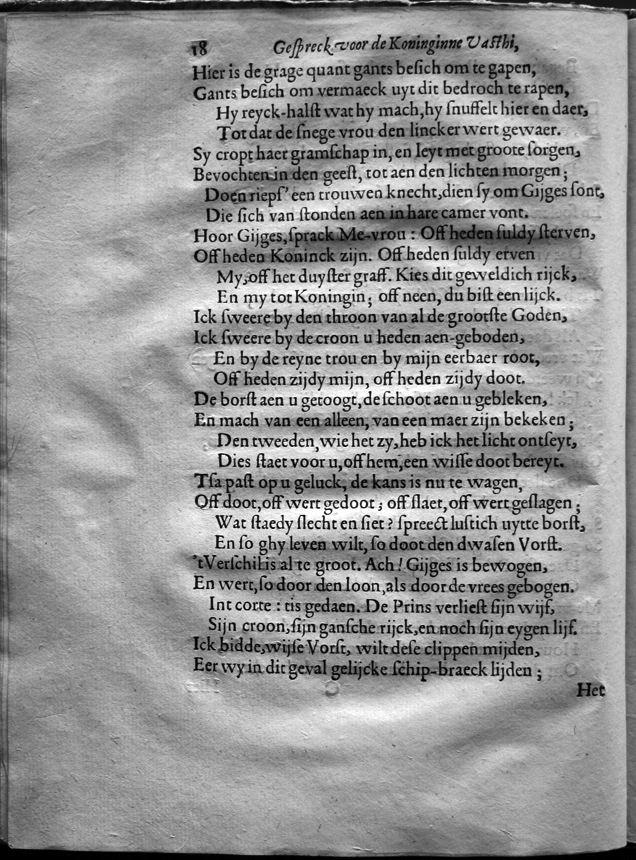 18 Geſpreck voor de Koninginne Vaſthi,
Hier is de grage quant gants beſich om te gapen,
Gants beſich om vermaeck uyt dit bedroch te rapen,
Hy reyck-halſt wat hy mach, hy ſnuffelt hier en daer,
Tot dat de ſnege vrou den lincker wert gewaer.
Sy cropt haer gramſchap in, en leyt met groote ſorgen,
Bevochten in den geeſt, tot aen den lichten morgen;
Doen rieps' een trouwen knecht, dien ſy om Gijges ſont,
Die ſich van ſtonden aen in hare camer vont.
Hoor Gijges, ſprack Me-vrou: Off heden ſuldy ſterven,
Off heden Koninck zijn. Off heden ſuldy erven
My, off het duyſter graff. Kies dit geweldich rijck,
En my tot Koningin; off neen, du biſt een lijck.
Ick ſweere by den throon van al de grootſte Goden,
Ick ſweere by de croon u heden aen-geboden,
En by de reyne trou en by mijn eerbaer root,
Off heden zijdy mijn, off heden zijdy doot.
De borſt aen u getoogt, de ſchoot aen u gebleken,
En mach van een alleen, van een maer zijn bekeken;
Den tweeden, wie het zy, heb ick het licht ontſeyt,
Dies ſtaet voor u, off hem, een wiſſe doot bereyt.
Tſa paſt op u geluck, de kans is nu te wagen,
Off doot, off wert gedoot; off ſlaet, off wert geſlagen;
Wat ſtaedy ſlecht en ſiet? ſpreect luſtich uytte borſt,
En ſo ghy leven wilt, ſo doot den dwaſen Vorſt.
'tVerſchil is al te groot. Ach! Gijges is bewogen,
En wert, ſo door den loon, als door de vrees gebogen.
Int corte: tis gedaen. De Prins verlieſt ſijn wijf,
Sijn croon, ſijn ganſche rijck, en noch ſijn eygen lijf.
Ick bidde, wijſe Vorſt, wilt deſe clippen mijden,
Eer wy in dit geval gelijcke ſchip-braeck lijden;
Het